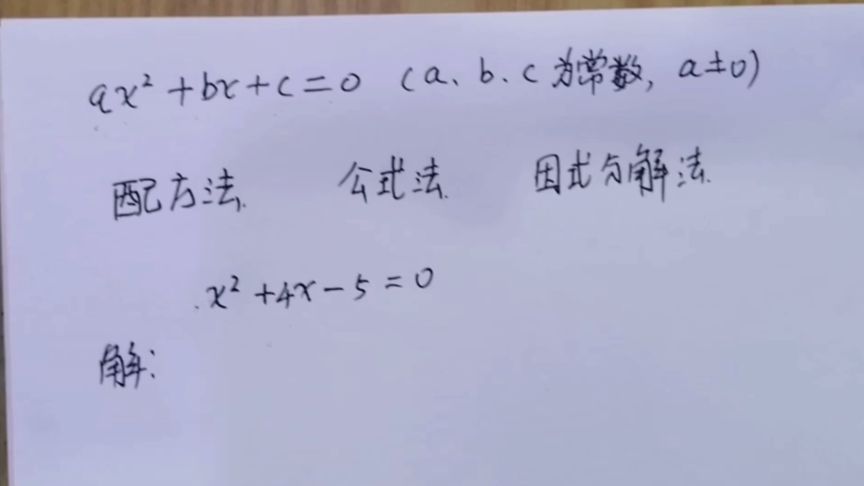 ax² + bx + c = 0 (a、b、c 为常数, a≠0)
配方法. 公式法. 因式分解法.
x² + 4x - 5 = 0
解: